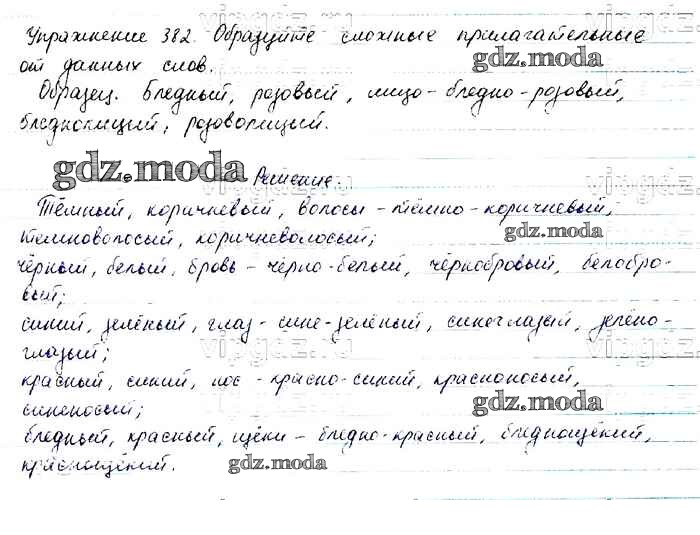 Упражнение 382. Образуйте сложные прилагательные
от данных слов.
Образец. Бледный, розовый, лицо - бледно-розовый,
бледнолицый, розоволицый.
gdz.moda
gdz.moda
Решение.
Тёмный, коричневый, волосы - тёмно-коричневый,
темноволосый, коричневолосый;
gdz.moda
чёрный, белый, бровь - чёрно-белый, чернобровый, белобро-
вый;
синий, зелёный, глаз - сине-зелёный, синеглазый, зелено-
глазый;
vipgdz.ru
красный, синий, нос - красно-синий, красноносый,
синеносый;
gdz.moda
бледный, красный, щёки - бледно-красный, бледнощёкий,
краснощёкий.
gdz.moda